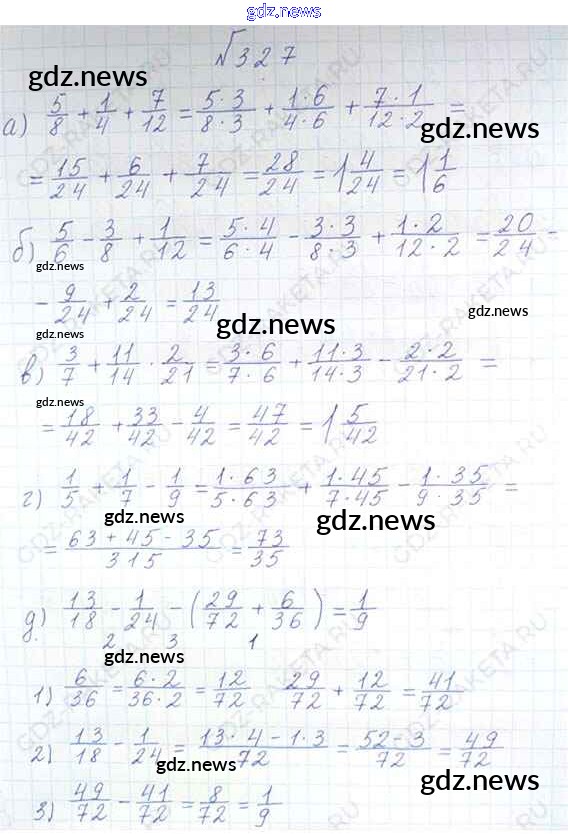 gdz.news
№327
gdz.news
а) 5/8 + 1/4 + 7/12 = 5·3/8·3 + 1·6/4·6 + 7·1/12·2 =
gdz.news
= 15/24 + 6/24 + 7/24 = 28/24 = 1 4/24 = 1 1/6
б) 5/6 - 3/8 + 1/12 = 5·4/6·4 - 3·3/8·3 + 1·2/12·2 = 20/24 -
gdz.news
- 9/24 + 2/24 = 13/24
gdz.news
gdz.news
gdz.news
в) 3/7 + 11/14 · 2/21 = 3·6/7·6 + 11·3/14·3 - 2·2/21·2 =
gdz.news
= 18/42 + 33/42 - 4/42 = 47/42 = 1 5/42
gdz.news
г) 1/5 + 1/7 - 1/9 = 1·63/5·63 + 1·45/7·45 - 1·35/9·35 =
gdz.news
gdz.news
= 63+45-35/315 = 73/35
д) 13/18 - 1/24 - (29/72 + 6/36) = 1/9
2 3 1
gdz.news
1) 6/36 = 6·2/36·2 = 12/72 29/72 + 12/72 = 41/72
2) 13/18 - 1/24 = 13·4-1·3/72 = 52-3/72 = 49/72
gdz.news
gdz.news
3) 49/72 - 41/72 = 8/72 = 1/9
GDZ-RAKETA.RU